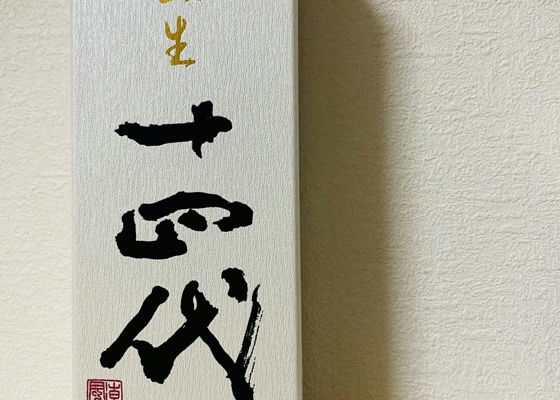 生
十四代